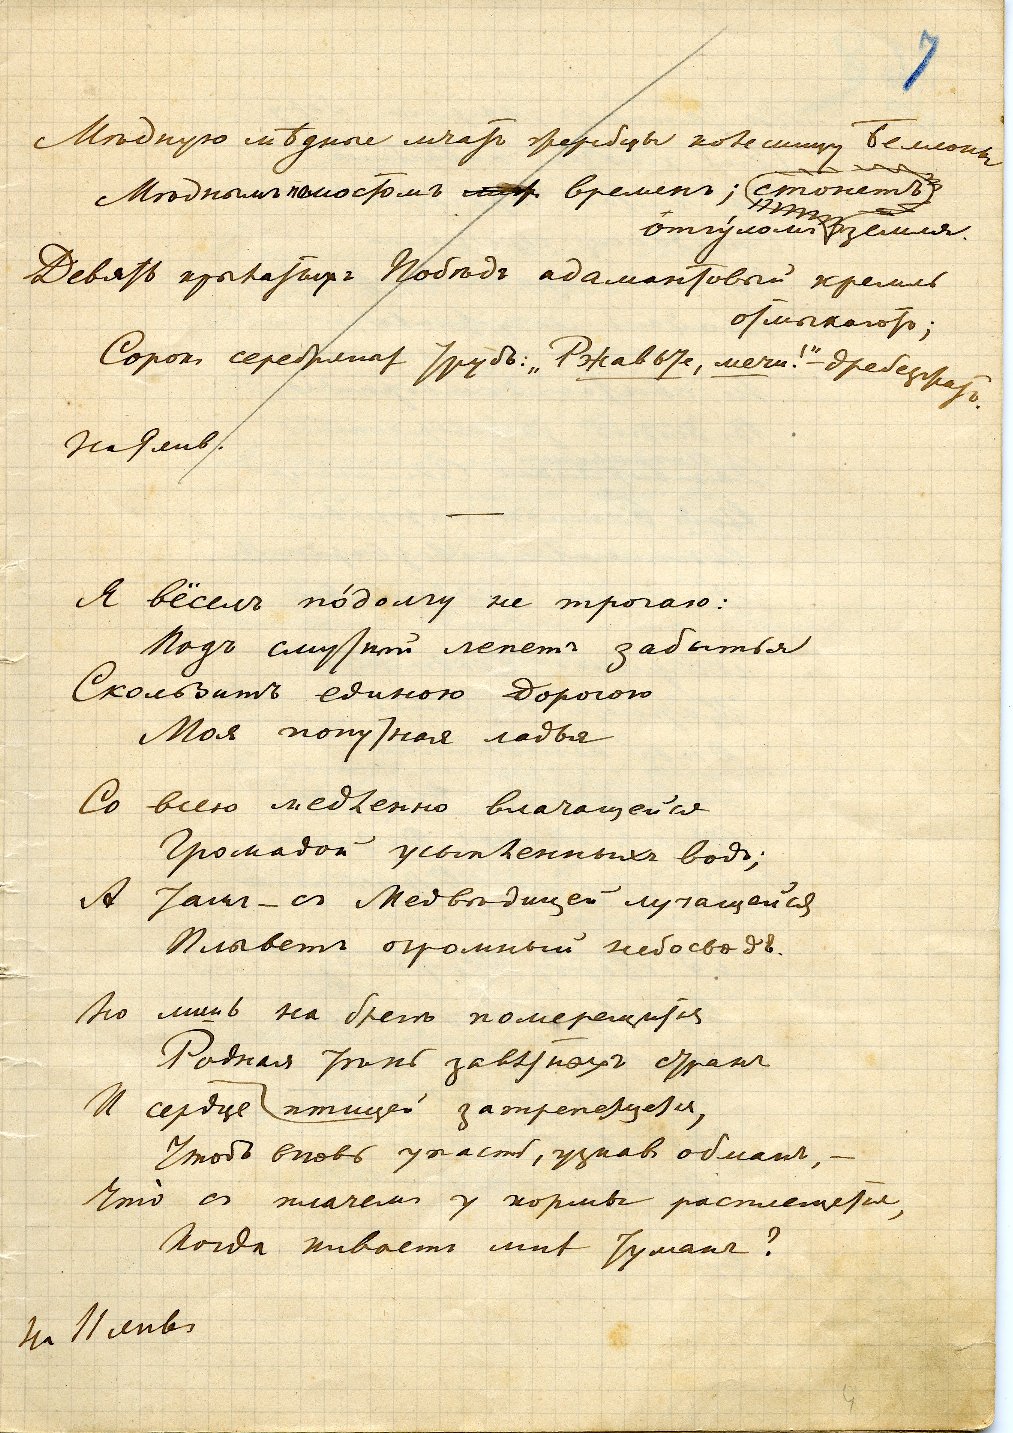 7
Мѣдную мѣдные мчатъ жеребцы колесницу Беллоны
Мѣднымъ помостомъ временъ; стонетъ
отгуломъ земля.
Девять крылатыхъ Побѣдъ адамантовый кремль
отмыкаютъ;
Сорокъ серебряныхъ трубъ: „Ржавѣйте, мечи!" – дребезжатъ.
На
Я вёселъ по́долгу не трогаю:
Подъ смутный лепетъ забытья
Скользитъ единою дорогою
Моя попутная ладья
Со всею медленно влачащейся
Громадой усыпленныхъ водъ;
А тамъ – съ Медвѣдицей лучащейся
Плыветъ огромный небосводъ.
Но лишь на брегъ померещится
Родная тѣнь завѣтныхъ странъ
И сердце птицей затрепещется,
Чтобъ вновь упасть, узнавъ обманъ, –
Что̀ съ плачемъ у кормы расплещется,
Когда киваетъ мнѣ туманъ?
На